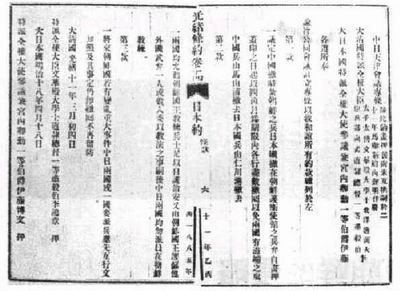 中日天津會議專條
大清國特派全權大臣
大日本國特派全權大使參議兼宮內卿勳一等伯爵伊藤
各遵所奉
諭旨公同會議訂立專條以敦和誼所有約款臚列於左
第一款
一議定中國撤駐紮朝鮮之兵日本國撤在朝鮮護衛使館之兵弁自畫押
蓋印之日起以四箇月為期限內各行盡數撤回以免兩國有滋端之虞
中國兵由馬山浦撤去日本國兵由仁川港撤去
第二款
光緒條約卷 日本約 條款 六 十一年乙酉
西一八八五
一兩國均允勸朝鮮國王教練兵士足以自護治安又由朝鮮國王選僱他
外國武弁一人或數人委以教演之事嗣後中日兩國均勿派員在朝鮮
教練
第三款
一將來朝鮮國若有變亂重大事件中日兩國或一國要派兵應先互行文
知照及其事定仍即撤回不再留防
大清國光緒十一年三月初四日
特派全權大臣文華殿大學士直隸總督一等肅毅伯李鴻章 押
大日本國明治十八年四月十八日
特派全權大使參議兼宮內卿勳一等伯爵伊藤博文 押